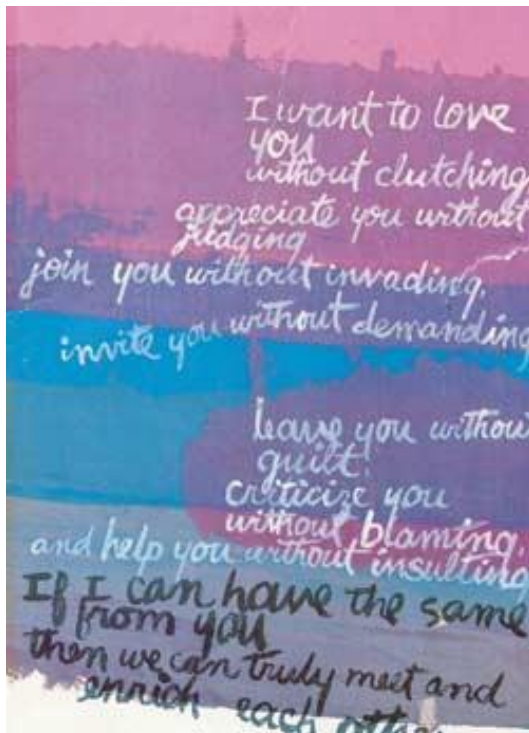 I want to love
you
without clutching
appreciate you without
judging
join you without invading,
invite you without demanding
leave you withou
guilt.
criticize you
without blaming,
and help you without insulting
If I can have the same
from you
then we can truly meet and
enrich each othe